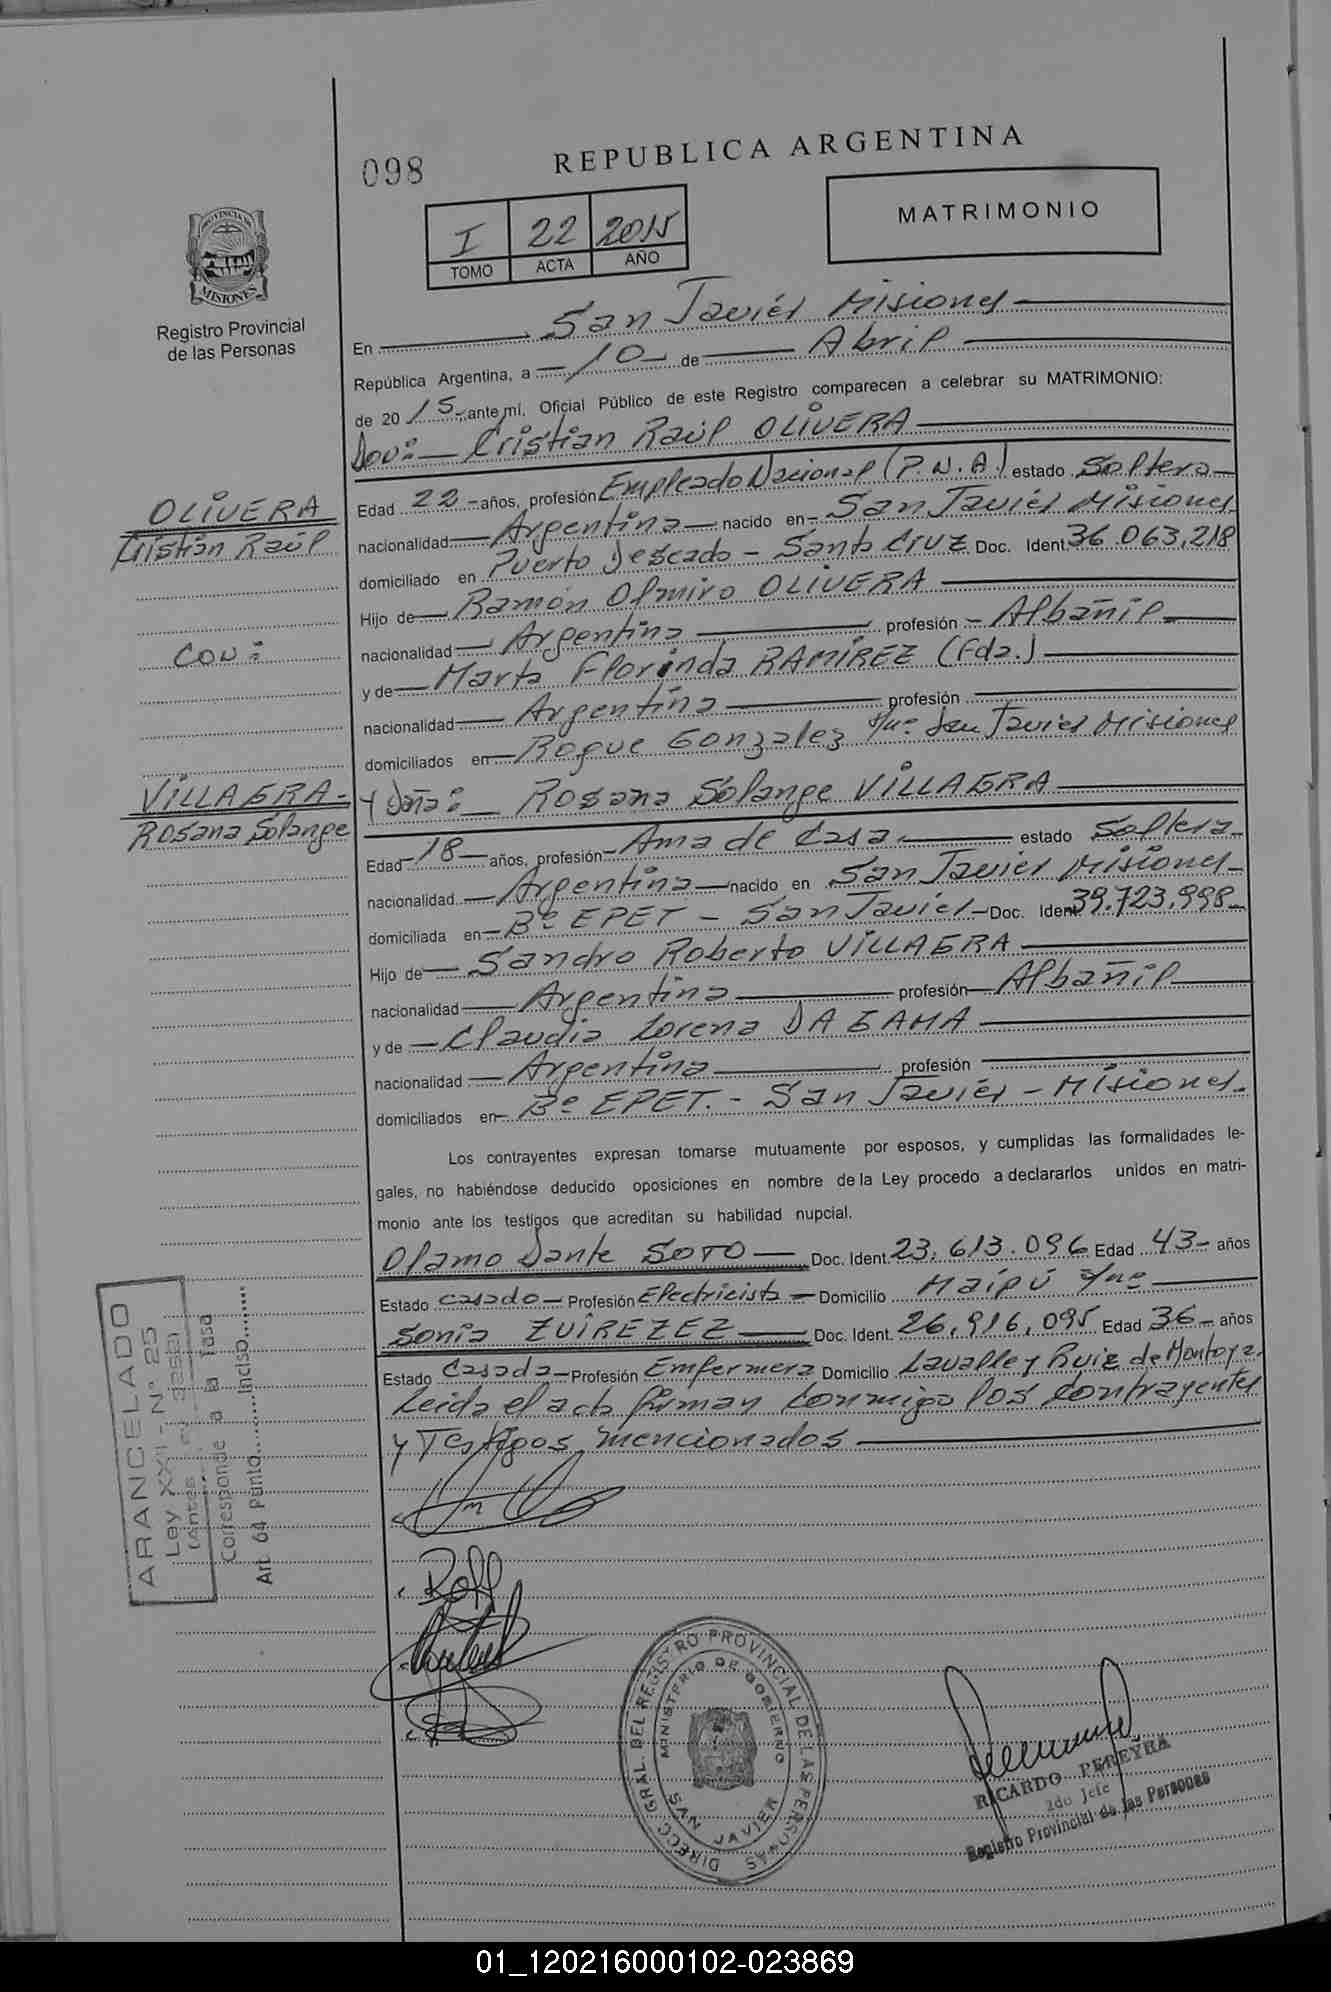 098
REPUBLICA ARGENTINA
I 22 2015
TOMO ACTA AÑO
MATRIMONIO
PROVINCIA DE
MISIONES
Registro Provincial
de las Personas
En San Javier Misiones
República Argentina, a 10 de Abril
de 2015 ante mí, Oficial Público de este Registro comparecen a celebrar su MATRIMONIO:
Don: Cristian Raúl OLIVERA
Edad 22 años, profesión Empleado Nacional (P.N.A.) estado Soltero
nacionalidad Argentina nacido en San Javier Misiones
domiciliado en Puerto Deseado - Santa Cruz Doc. Ident. 36.063.218
Hijo de Ramón Olmiro OLIVERA
nacionalidad Argentina profesión Albañil
y de Marta Florinda RAMÍREZ (Fda.)
nacionalidad Argentina profesión
domiciliados en Roque Gonzalez s/nº San Javier Misiones
y Doña: Rosana Solange VILLAGRA
Edad 18 años, profesión Ama de Casa estado Soltera
nacionalidad Argentina nacido en San Javier Misiones
domiciliada en Bº EPET - San Javier Doc. Ident. 39.723.998
Hijo de Sandro Roberto VILLAGRA
nacionalidad Argentina profesión Albañil
y de Claudia Lorena DA GAMA
nacionalidad Argentina profesión
domiciliados en Bº EPET. - San Javier - Misiones.
Los contrayentes expresan tomarse mutuamente por esposos, y cumplidas las formalidades le-
gales, no habiéndose deducido oposiciones en nombre de la Ley procedo a declararlos unidos en matri-
monio ante los testigos que acreditan su habilidad nupcial.
Olamo Dante SOTO Doc. Ident. 23.613.096 Edad 43 años
Estado Casado Profesión Electricista Domicilio Maipú s/nº
Sonia ZUIREZEZ Doc. Ident. 26.916.095 Edad 36 años
Estado Casada Profesión Enfermera Domicilio Lavalle y Ruiz de Montoya.
Leida el acta firman conmigo los contrayentes
y Testigos mencionados
OLIVERA
Cristian Raúl
CON:
VILLAGRA
Rosana Solange
ARANCELADO
Ley XXII - Nº 25
(Antes
Corresponde a la Tasa
Art. 64 Punto Inciso
DIRECC. GRAL. DEL REGISTRO PROVINCIAL DE LAS PERSONAS
MINISTERIO DE GOBIERNO
SAN JAVIER
RICARDO PEREYRA
2do Jefe
Registro Provincial de las Personas
01_120216000102-023869